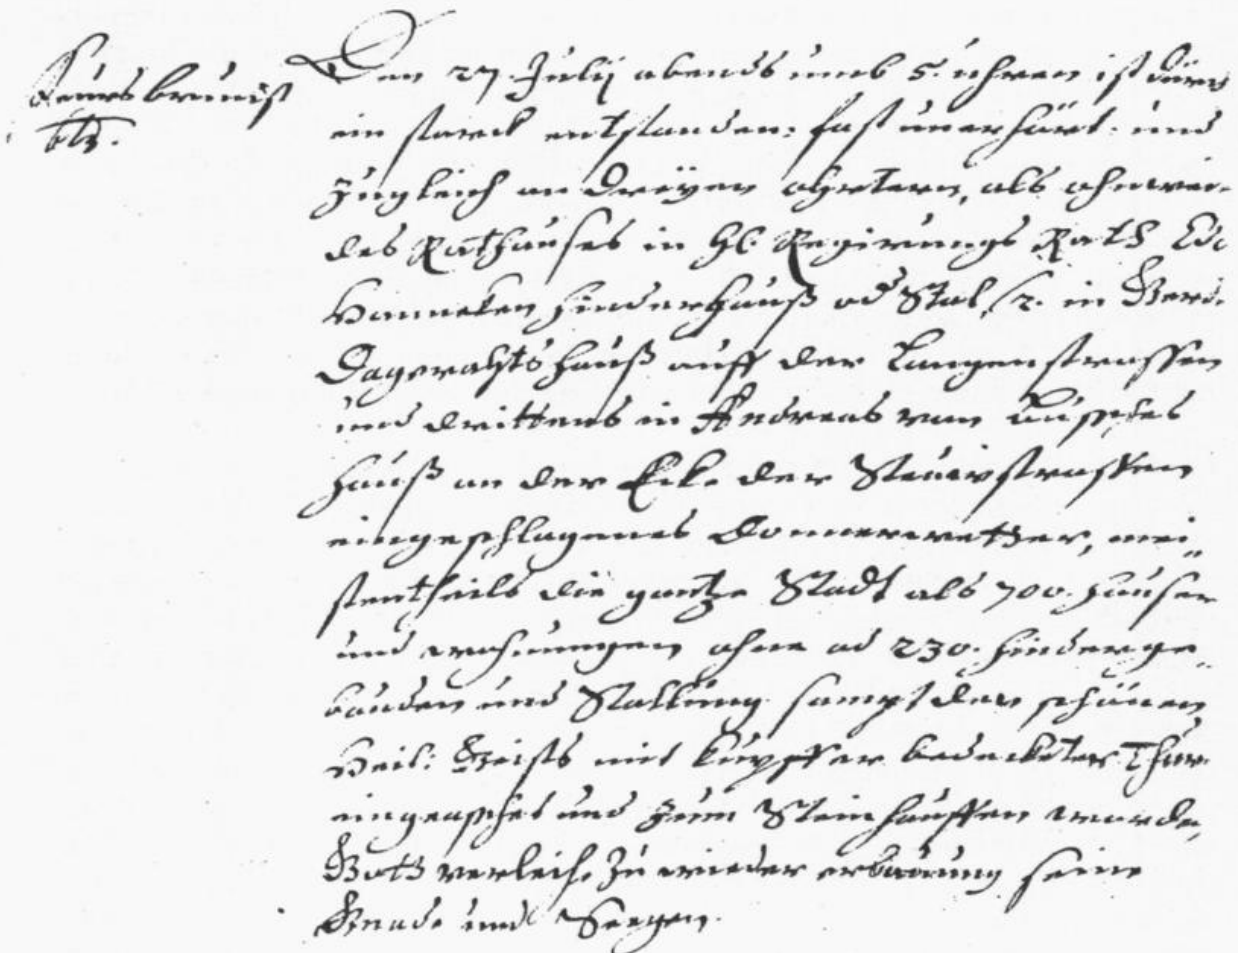 Feursbrunst
Den 27. Julij abends umb 5. uhren ist durch
ein starck entstanden: fast unerhört: und
zugleich an dreyen ohrtern, als ohnweit
des Rathauses in HE. Regirungs Rath
Vanneken hinderhauß od Stal, 2. in Gerd.
Dagerahts hauß auff der Langenstrassen
und drittens in Andreas van
hauß an der Ecke der Steinstrassen
eingeschlagenes Donnerwetter, mei„
stentheils die gantze Stadt als 700. Häuser
und wohnungen ohne ad 230. hinderge„
bäuden und Stallung sampt den schönen
Heil: Geists mit kupffer bedeckter Thurn
eingeaschet und zum Steinhauffen worden,
Gott verleihe zu wieder erbawung seine
Gnade und Seegen.